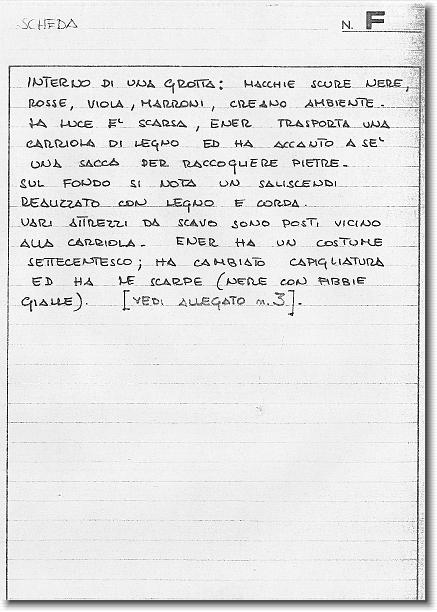 SCHEDA
N. F
INTERNO DI UNA GROTTA: MACCHIE SCURE NERE,
ROSSE, VIOLA, MARRONI, CREANO AMBIENTE.
LA LUCE E' SCARSA, ENER TRASPORTA UNA
CARRIOLA DI LEGNO ED HA ACCANTO A SE'
UNA SACCA PER RACCOGLIERE PIETRE.
SUL FONDO SI NOTA UN SALISCENDI
REALIZZATO CON LEGNO E CORDA.
VARI ATTREZZI DA SCAVO SONO POSTI VICINO
ALLA CARRIOLA. ENER HA UN COSTUME
SETTECENTESCO; HA CAMBIATO CAPIGLIATURA
ED HA LE SCARPE (NERE CON FIBBIE
GIALLE). [VEDI ALLEGATO n. 3].